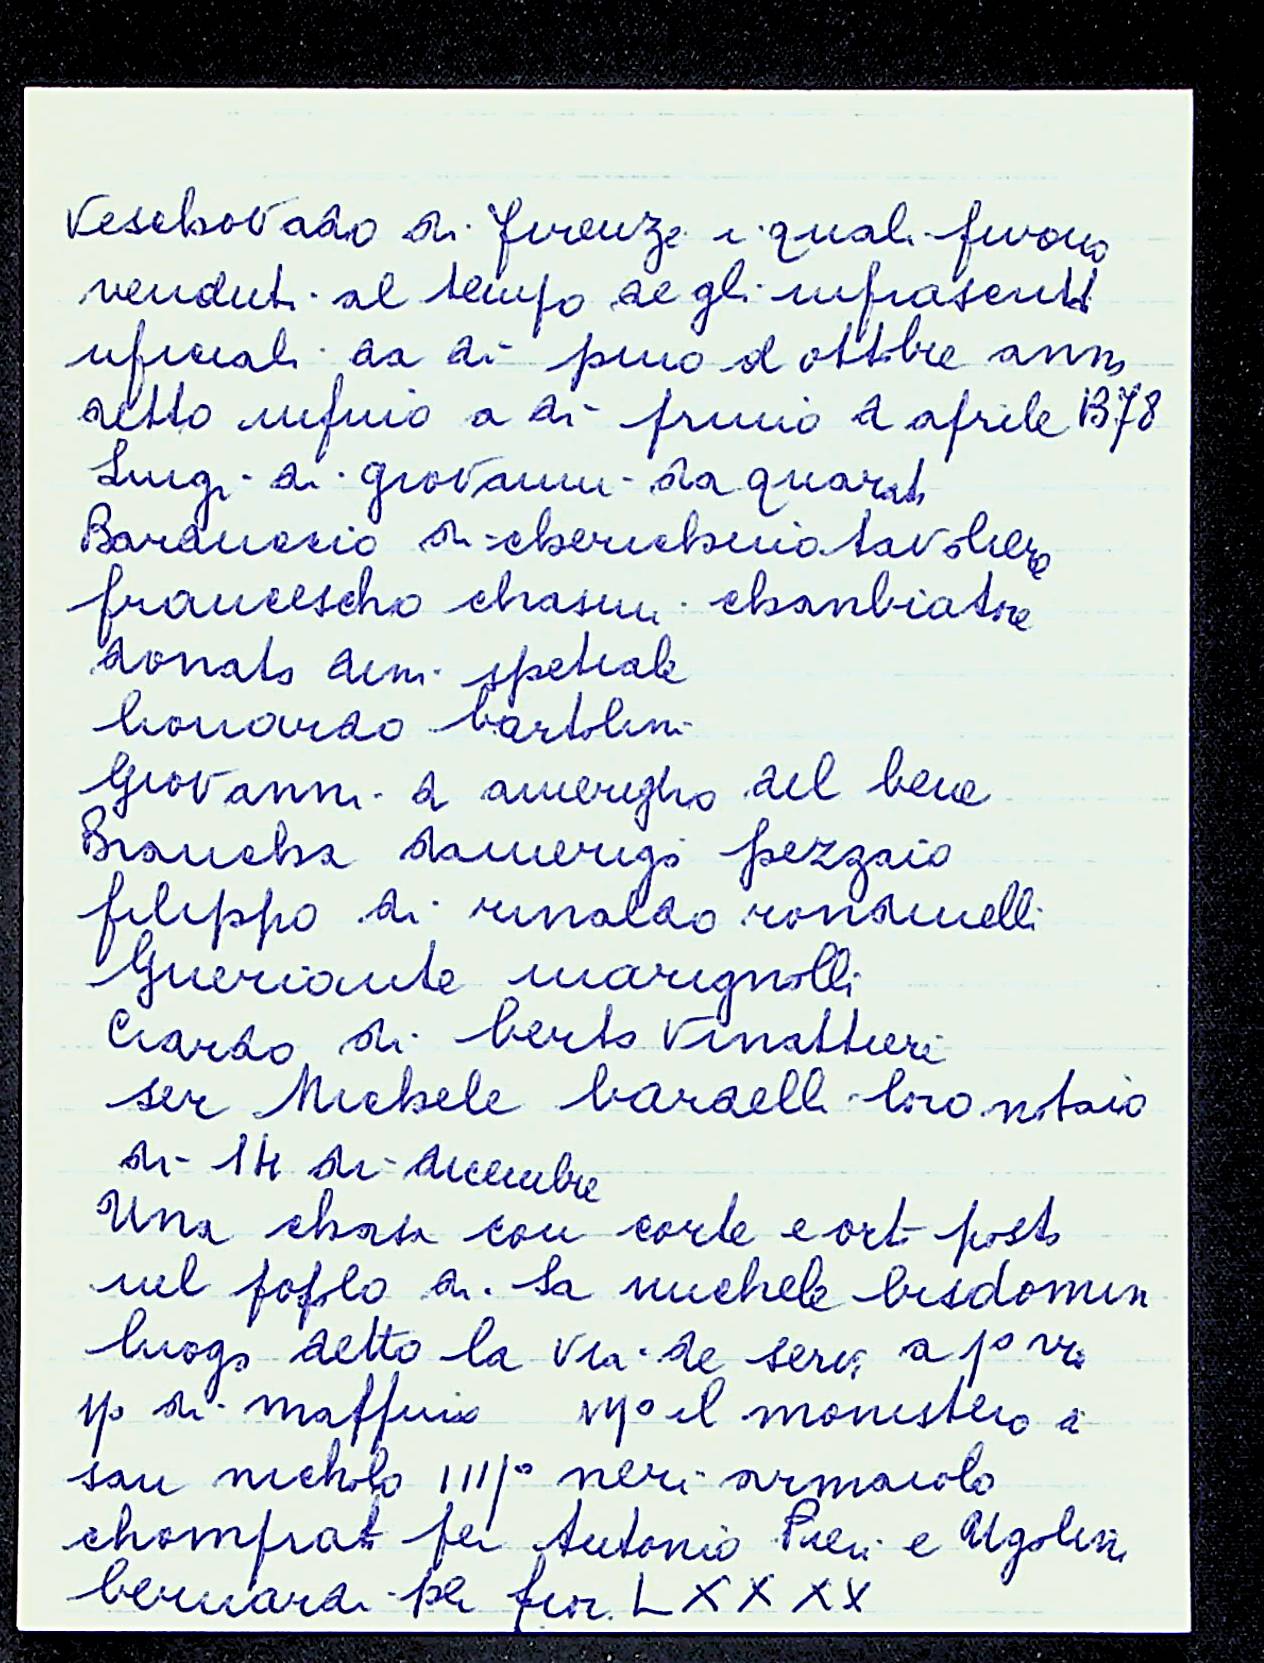 Veschovado di firenze i quali furono
venduti al tempo degli infrascritti
uficiali da di primo d ottobre anno
detto infino a di primo d aprile 1378
Luigi di giovanni da quarata
Barduccio di cherichino tavoliere
francescho chasini chanbiatore
donato dini spetiale
lionardo bartolini
Giovanni d amerigho del bene
Brancha damerigo pezzaio
filippo di rinaldo rondinelli
Gueriante marignolli
Ciardo di berto vinattieri
ser Michele bardelli loro notaio
di 14 di dicembre
Una chasa con corte e orto posto
nel poplo di Sa michele bisdomini
luogo detto la via de servi a pº via
ijº di maffino iijº il monistero di
san nicholo iiijº neri armaiolo
chomprata per Antonio Pieri e Ugolini
bernardi per fior. LXXXX